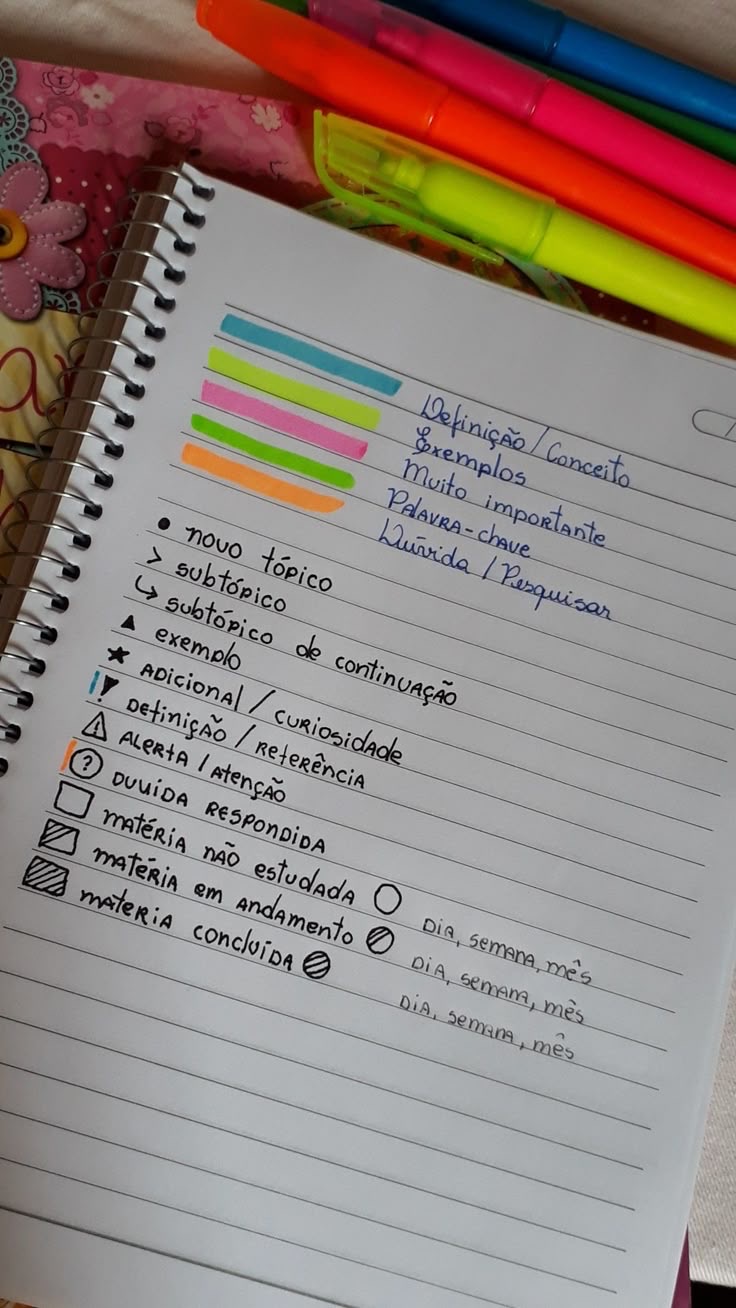 Definição / Conceito
Exemplos
Muito importante
Palavra-chave
Dúvida / Pesquisar
• novo tópico
> subtópico
↳ subtópico de continuação
▲ exemplo
★ Adicional / curiosidade
! Definição / referência
⚠ Alerta / Atenção
? Duvida respondida
matéria não estudada
Dia, semana, mês
matéria em andamento
Dia, semana, mês
materia concluída
Dia, semana, mês